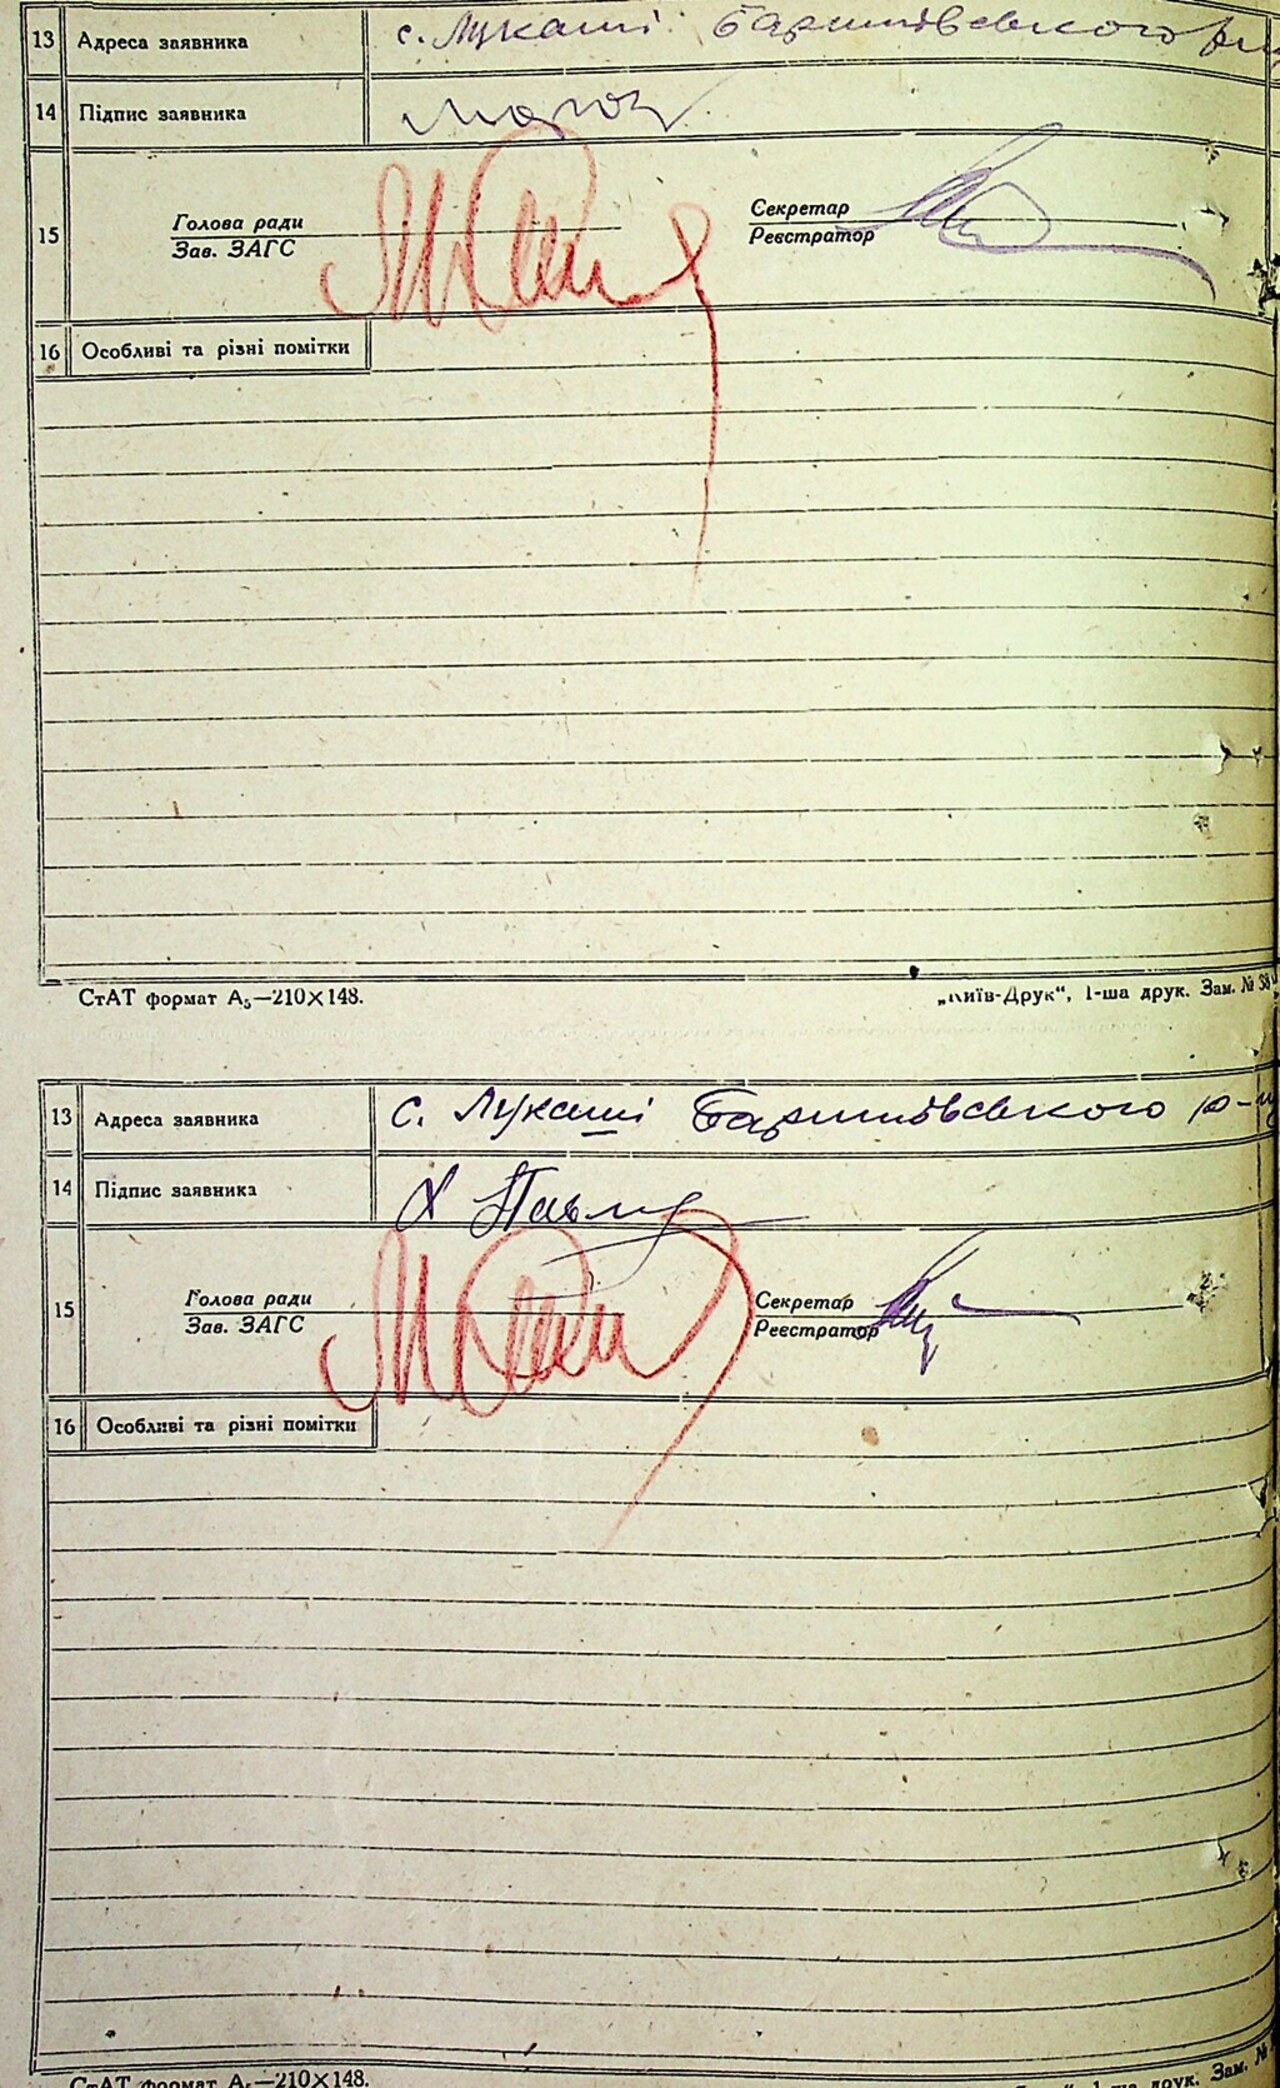 13 Адреса заявника с. Лукаші Баришівського
14 Підпис заявника
15 Голова ради
Зав. ЗАГС
Секретар
Реєстратор
16 Особливі та різні помітки
СтАТ формат А₅—210×148. „Київ-Друк“, 1-ша друк. Зам. №
13 Адреса заявника с. Лукаші Баришівського р-
14 Підпис заявника
15 Голова ради
Зав. ЗАГС
Секретар
Реєстратор
16 Особливі та різні помітки
СтАТ формат А₅—210×148. друк. Зам. №